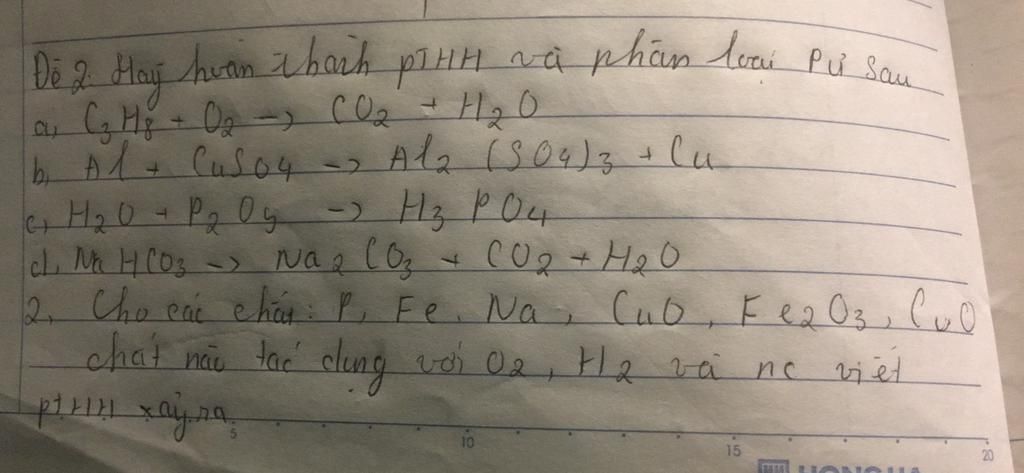 Đề 2. Hay hoàn thành ptHH và phân loại Pứ sau
a, C3H8 + O2 -> CO2 + H2O
b, Al + CuSO4 -> Al2 (SO4)3 + Cu
c, H2O + P2O5 -> H3PO4
d, NaHCO3 -> Na2CO3 + CO2 + H2O
2, Cho các chất: P, Fe, Na, CuO, Fe2O3, CuO
chất nào tác dụng với O2, H2 và nc viết
ptHH xảy ra
5 10 15 20
HONG HA